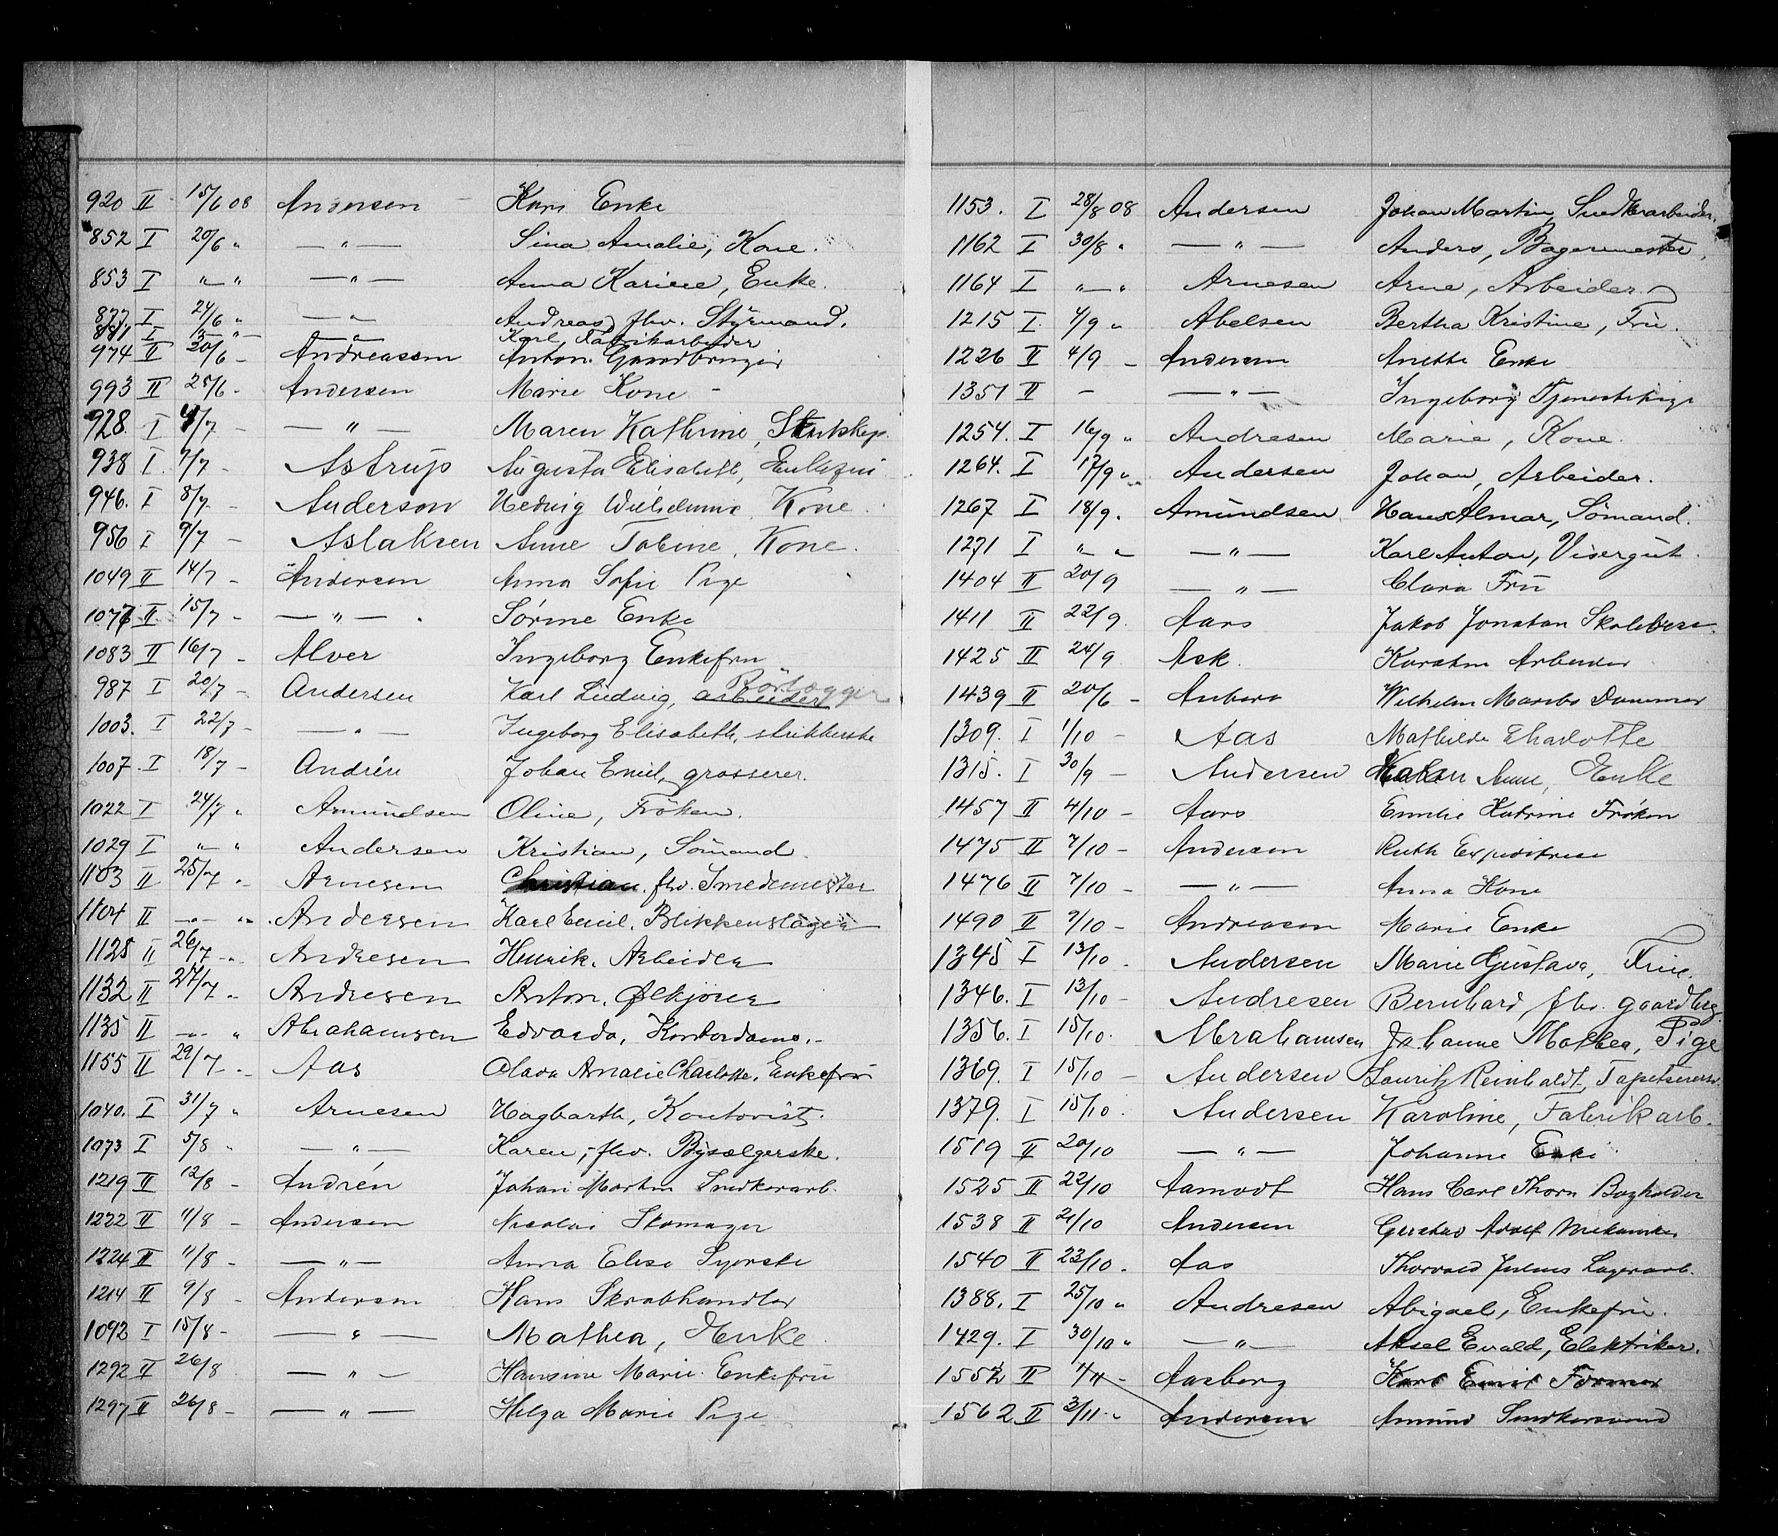 920 II 15/6 08 Andersen Kari Enke
852 I 20/6 „ — „ — Sina Amalie, Kone.
853 I „ „ — „ — Anna Karine, Enke.
877 I 24/6 „ — „ — Andreas, fhv. Styrmand.
881 I — „ — Karl, Fabrikarbeider
974 II 20/6 - Andreassen Anton
993 II 25/6 - Andersen Marie Kone -
928. I 4/7 - — „ — Maren Kathrine,
938 I. 7/7 - Astrup Augusta Elisabeth, Enkefru
946. I 8/7 - Anderson Hedvig Wilhelmine, Kone.
956 I 9/7 - Aslaksen Anne Tobine, Kone.
1049 II 14/7 - Andersen Anna Sofie Pige
1076 II 15/7 - — „ — Sørine Enke
1083 II 16/7 - Alver Ingeborg Enkefru
987 I 20/7 - Andersen Karl Ludvig, arbeider Rörlægger
1003. I 22/7 - — „ — Ingeborg Elisabeth, strikkerske
1007. I 18/7 - Andrén Johan Emil, grosserer.
1022 I 24/7 „ Amundsen Oline, Fröken.
1029 I „ „ Andersen Kristian, Sömand.
1103 II 25/7 „ Arnesen Christian. fhv. Smedemester
1104 II — „ Andersen Karl Emil. Blikkenslager
1125 II 26/7 - Andresen Henrik. Arbeider
1132 II 27/7 „ Andresen Anton. Ølkjører
1135 II — „ Abrahamsen Edvarda, Kontordame.
1155 II 29/7 - Aas Olava Amalie Charlotte. Enkefru
1040. I 31/7 „ Arnesen Hagbarth, Kontorist.
1073 I 5/8 „ — „ — Karen, fhv. Bysælgerske.
1219 II 12/8 - Andrén Johan Martin Snedkerarb.
1222 II 11/8 - Andersen Nicolai Skomager
1224 II 11/8 - — „ — Anna Elise Syerske
1214 II 9/8 - Andersen Hans Skrabhandler
1092 I 15/8 - — „ — Mathea, Enke.
1292 II 26/8 — „ — Hansine Marie Enkefru
1297 II 26/8 - — „ — Helga Marie Pige
1153. I 28/8 08 Andersen Johan Martin, Snedkerarbeider.
1162 I 30/8 „ — „ — Anders, Bagermester.
1164 I „ „ Arnesen Arne, Arbeider.
1215 I. 4/9 „ Abelsen Bertha Kristine, Fru.
1226 II 4/9 - Andersen Anette Enke
1351 II - — „ — Ingeborg Tjenestepige
1254. I 16/9 „ Andresen Marie, Kone.
1264. I 17/9 „ Andersen Johan, Arbeider.
1267 I 18/9 „ Amundsen. Hans Almar, Sömand.
1271 I „ „ — „ — Karl Anton, Visergut.
1404 II 20/9 — „ — Clara Fru
1411 II 22/9. Aars Jakob Jonatan
1425 II 24/9 Ask. Karsten Arbeider
1439 II 20/6 - Wilhelm
1309. I 1/10 - Aas Mathilde Charlotte
1315. I 30/9 - Andersen Anne, Enke
1457 II 4/10 - Aars Emilie Katrine Frøken
1475 II 7/10 - Andersen Ruth Expeditrise
1476 II 7/10 - — „ — Anna Kone
1490 II 9/10 - Andreasen Marie Enke
1345 I 13/10 - Andersen Marie Gustava, Frue.
1346. I 13/10 - Andresen Bernhard, fhv. gaardbrg.
1356. I 15/10. Abrahamsen Johanne Mathea, Pige
1369. I 15/10 - Andersen Lauritz Reinholdt, Tapetserersv.
1379. I 15/10. Andersen Karoline, Fabrikarb.
1519 II 20/10 — „ — Johanne Enke
1525 II 22/10 Aamodt Hans Carl Thorn Bogholder
1538 II 21/10 Andersen Adolf Mekaniker
1540 II 23/10. Aas Thorvald Julius Lagerarb.
1388. I 25/10 „ Andresen Abigael, Enkefru.
1429. I 30/10 „ — „ — Aksel Evald, Elektriker.
1552 II - Aasberg Karl Emil Former
1562 II 3/11 „ Andersen Amund Snedkersvend